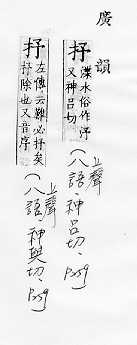 廣韻
抒
渫水俗作汿
又神呂切
(上聲
八語、神呂切、
抒
左傳云難必抒矣
抒除也又音序
(上聲
八語、神與切、